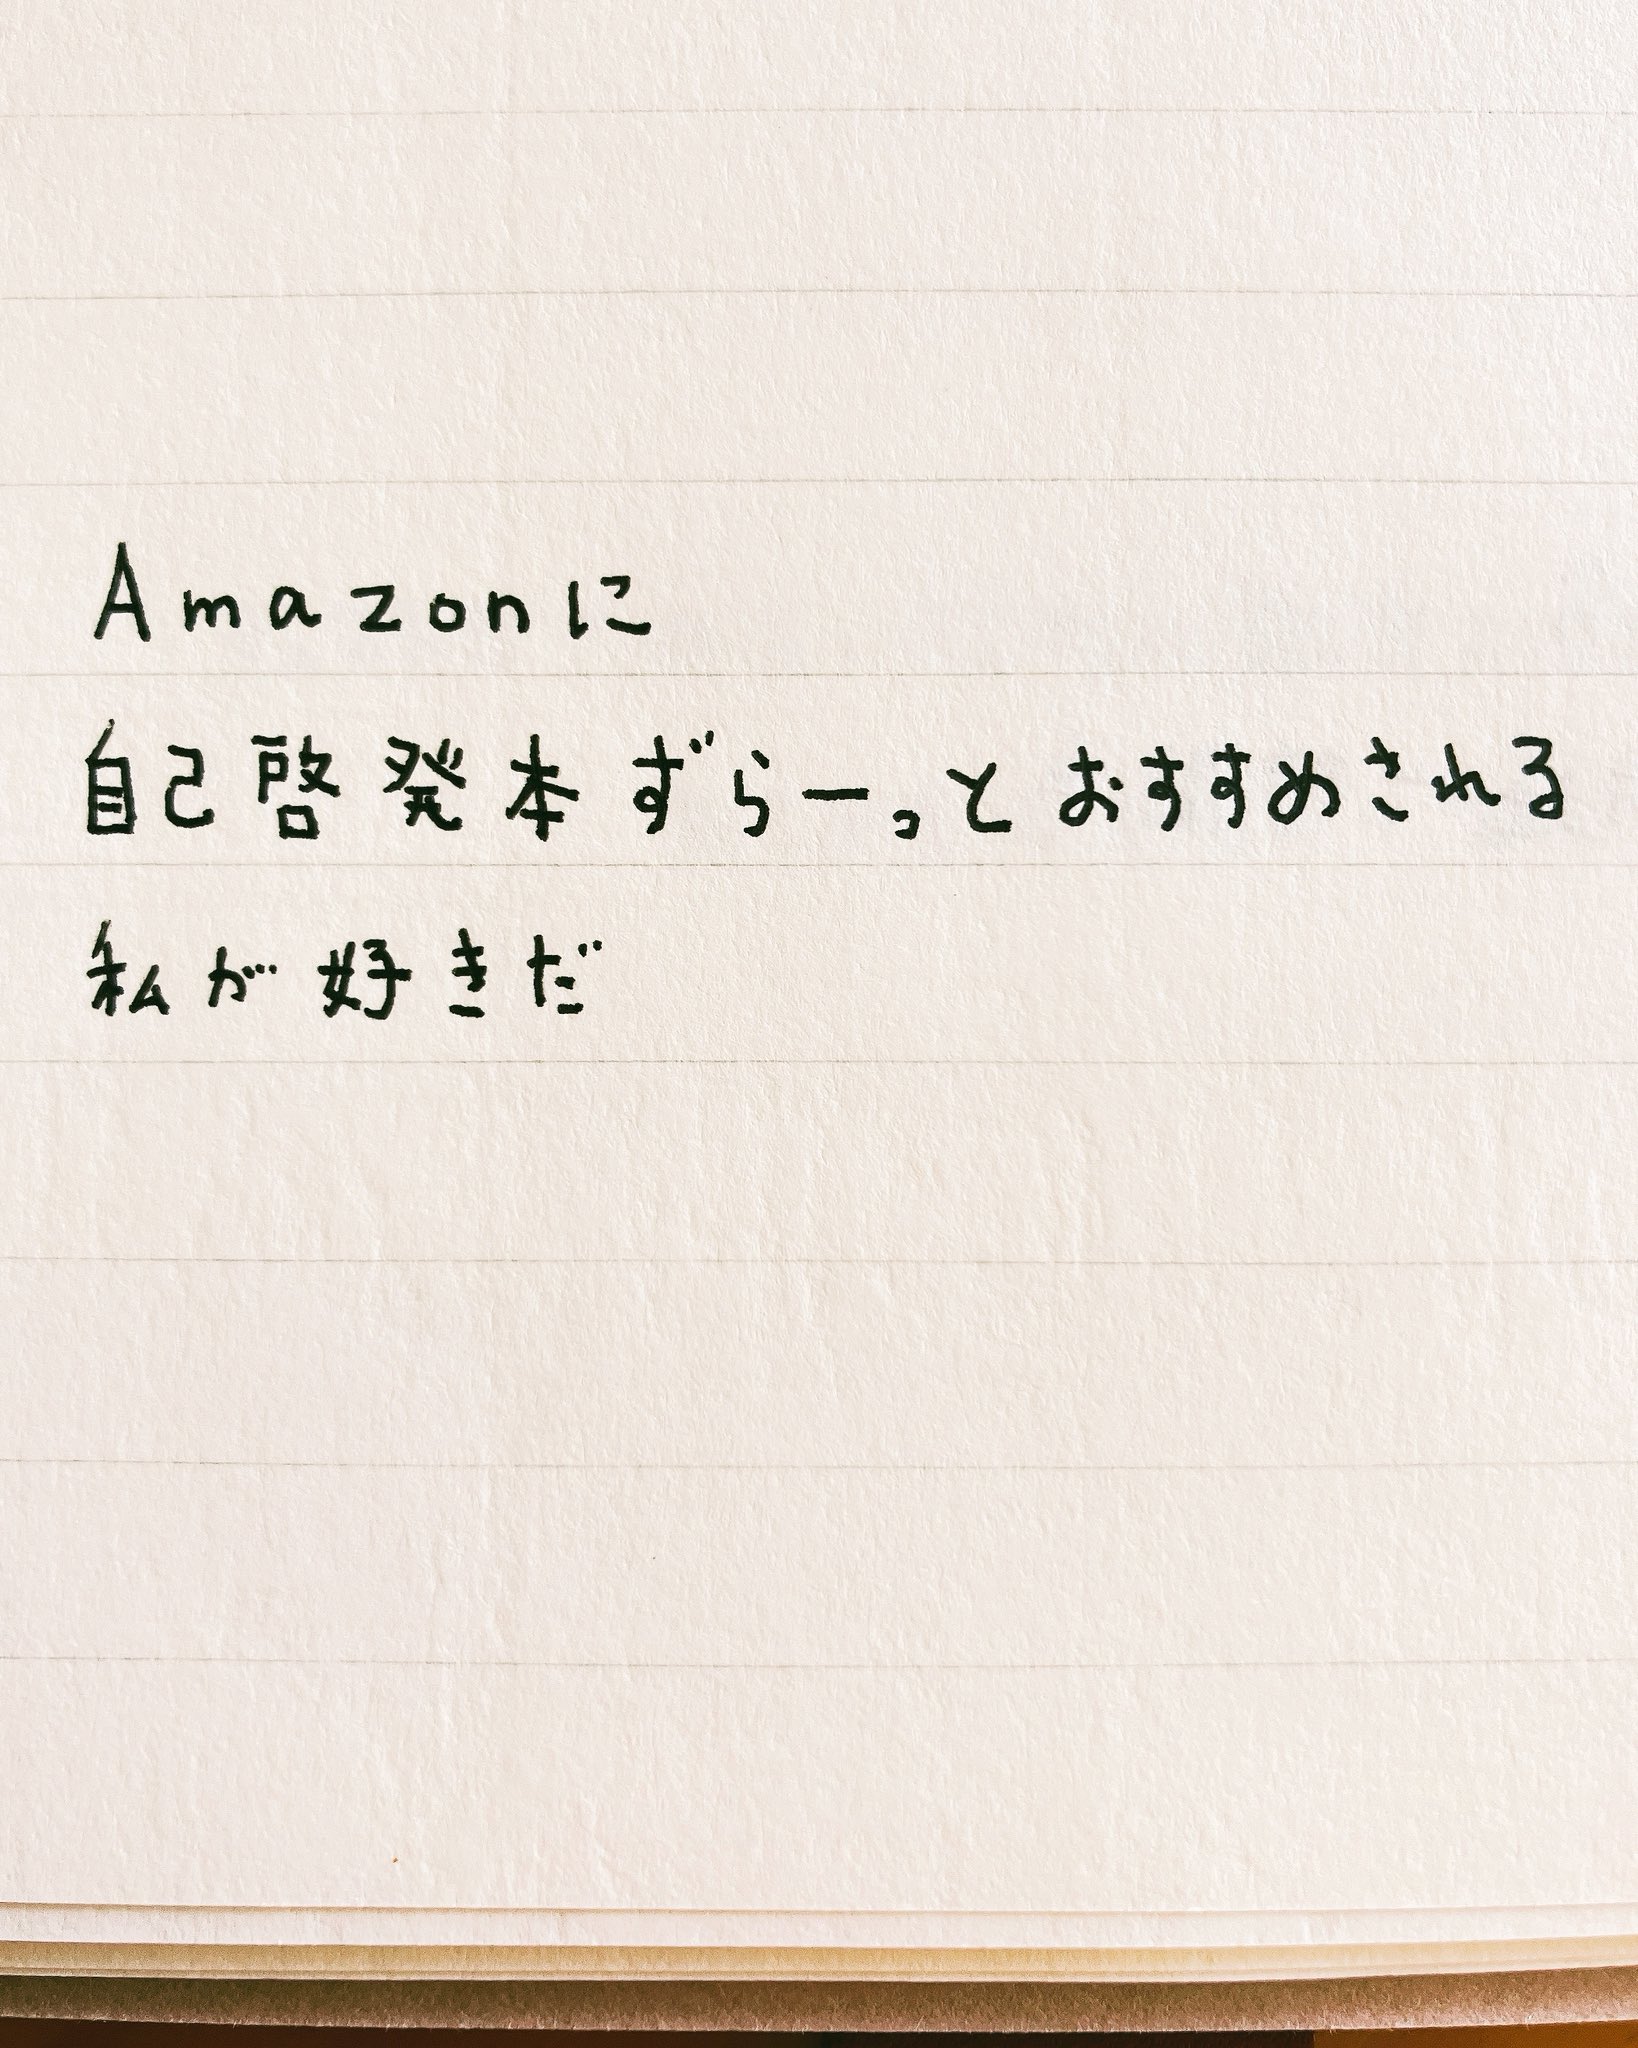 Amazonに
自己啓発本ずらーっとおすすめされる
私が好きだ